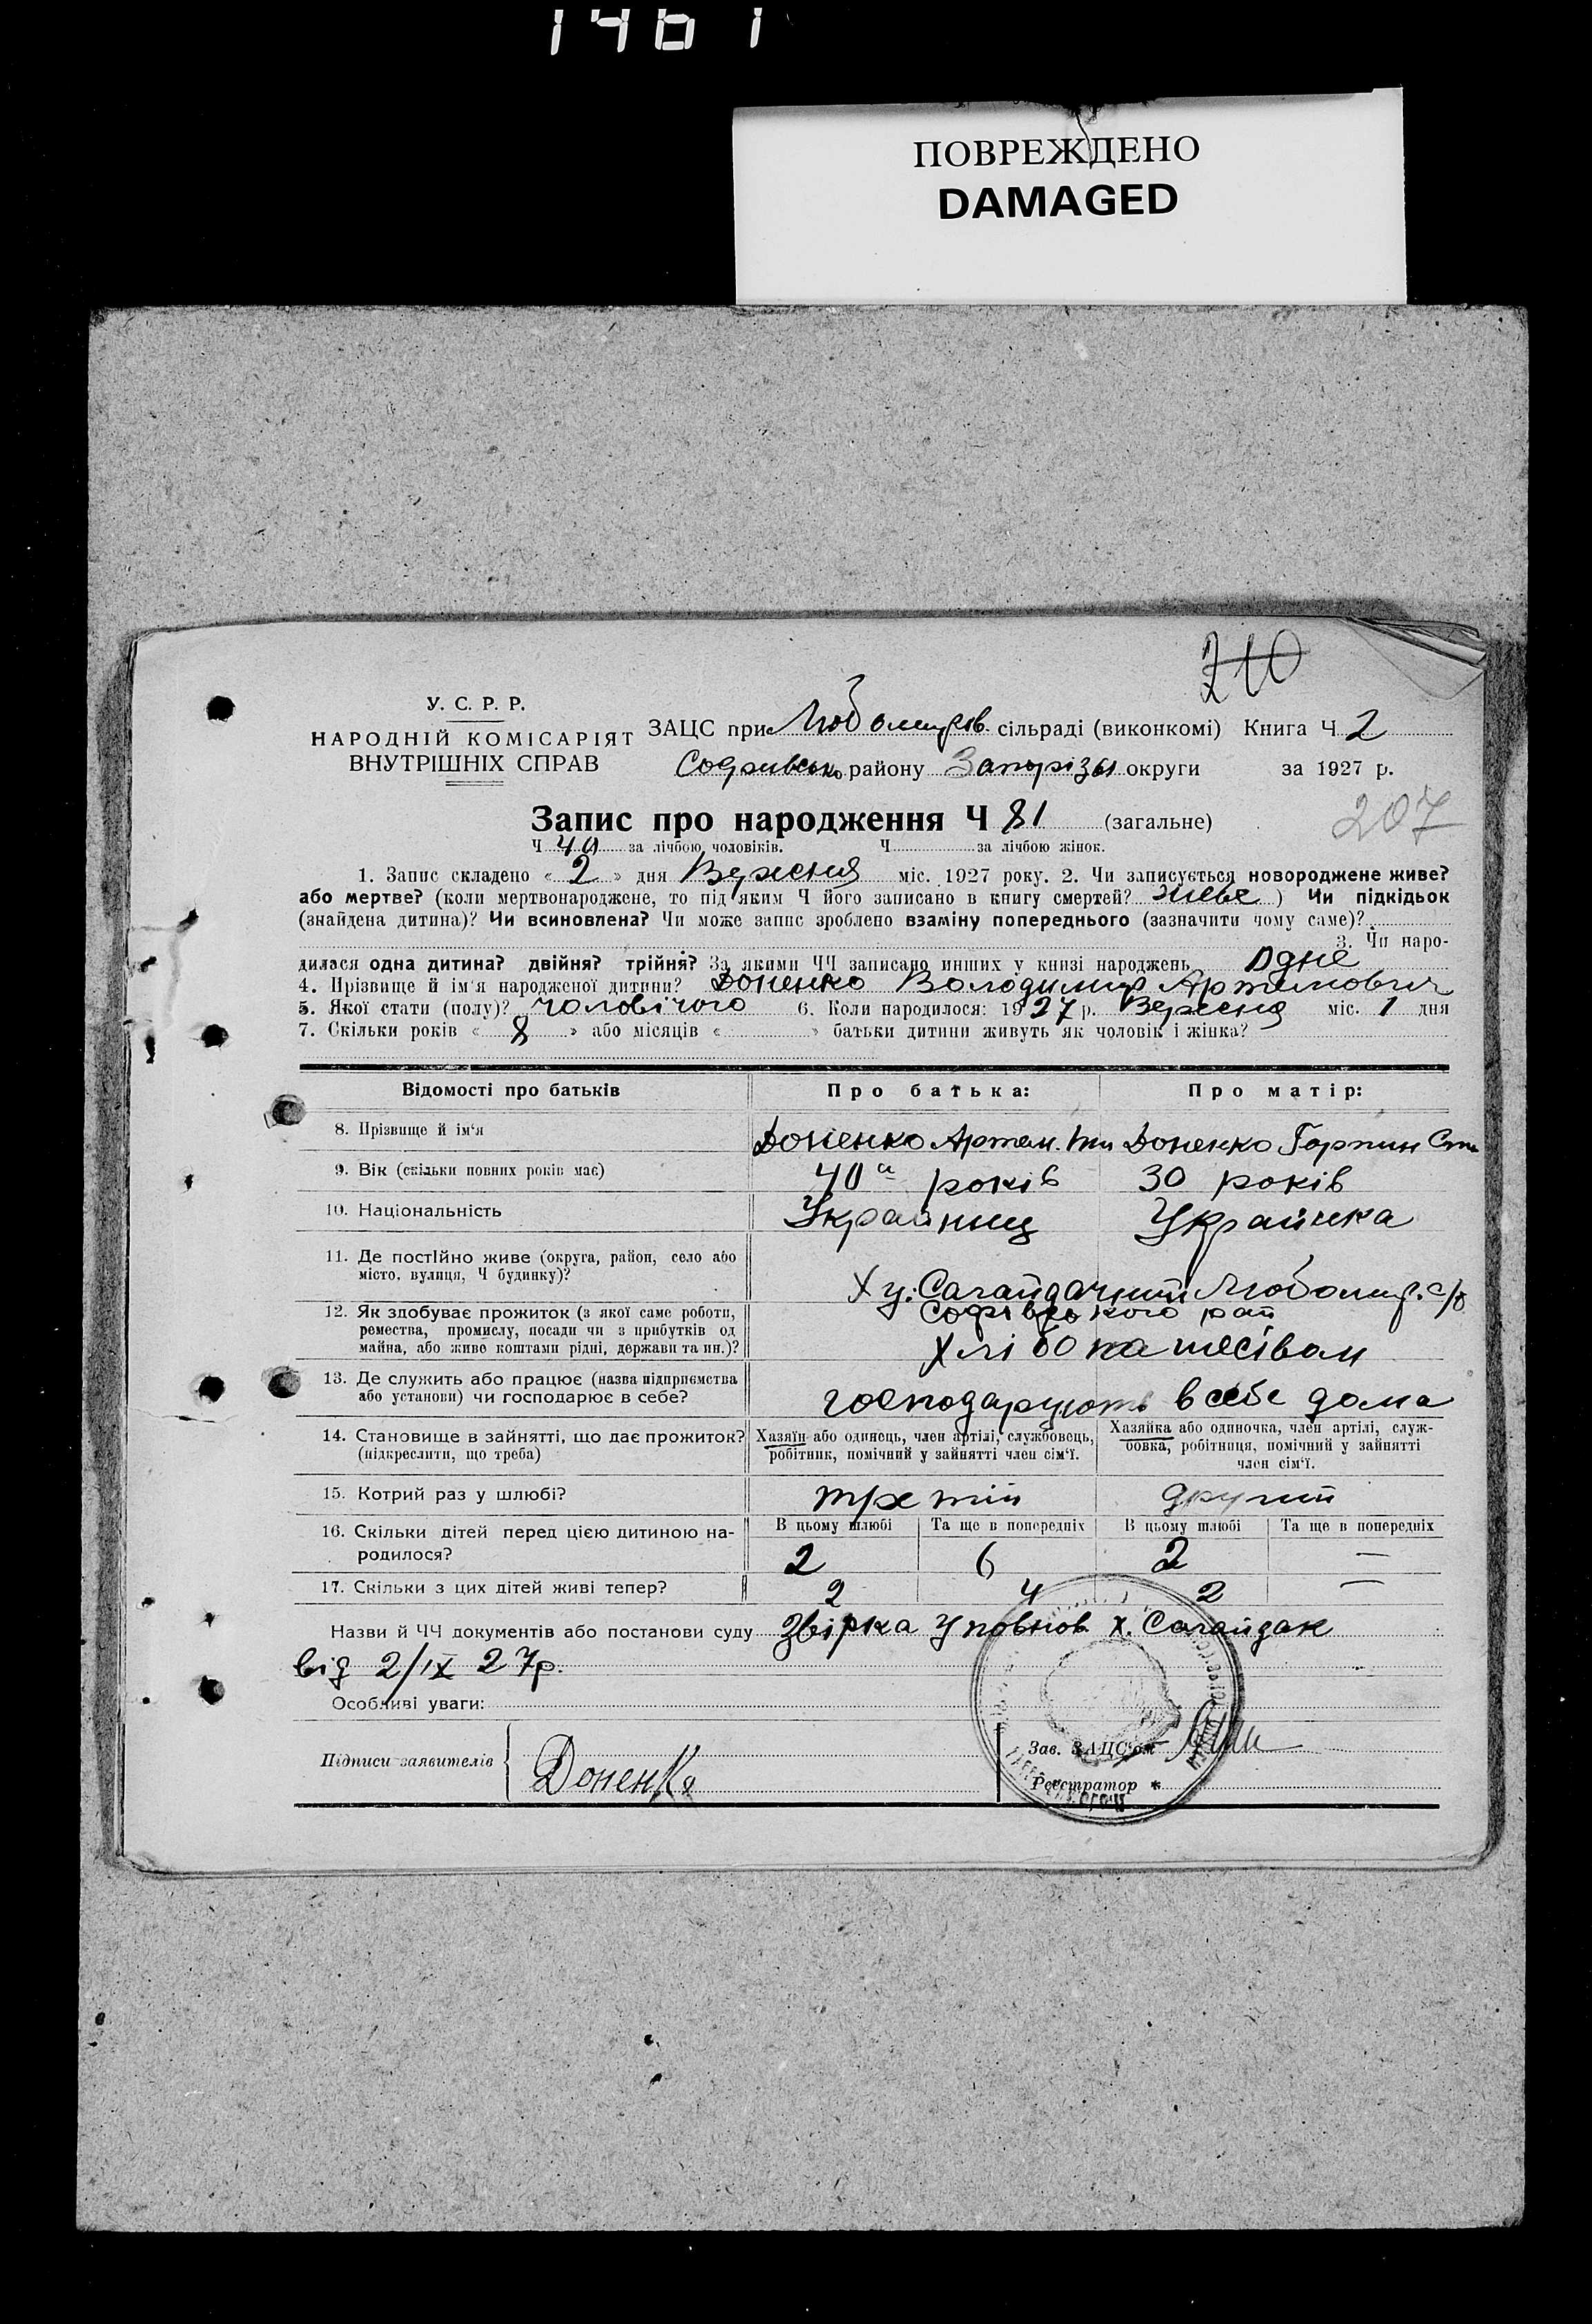 1461
ПОВРЕЖДЕНО
DAMAGED
210
У. С. Р. Р.
НАРОДНІЙ КОМІСАРІЯТ
ВНУТРІШНІХ СПРАВ
ЗАЦС при Любомирів. сільраді (виконкомі) Книга Ч 2
Софиївсько району Запорізьк округи за 1927 р.
207
Запис про народження Ч 81 (загальне)
Ч 40 за лічбою чоловіків. Ч за лічбою жінок.
1. Запис складено « 2 » дня Вересня міс. 1927 року. 2. Чи записується новороджене живе?
або мертве? (коли мертвонароджене, то під яким Ч його записано в книгу смертей? живе ) Чи підкідьок
(знайдена дитина)? Чи всиновлена? Чи може запис зроблено взаміну попереднього (зазначити чому саме)?
3. Чи наро-
дилася одна дитина? двійня? трійня? За якими ЧЧ записано инших у книзі народжень Одне
4. Прізвище й ім'я народженої дитини? Доненко Володимир Артемович
5. Якої стати (полу)? чоловічого 6. Коли народилося: 1927 р. Вересня міс. 1 дня
7. Скільки років « 8 » або місяців « » батьки дитини живуть як чоловік і жінка?
Відомості про батьків Про батька: Про матір:
8. Прізвище й ім'я Доненко Артем. Доненко Горпин
9. Вік (скільки повних років має) 40 років 30 років
10. Національність Українець Українка
11. Де постійно живе (округа, район, село або
місто, вулиця, Ч будинку)?
Ху: Сагайдачний Любомир. с/р
Софіївського рай
12. Як здобуває прожиток (з якої саме роботи,
ремества, промислу, посади чи з прибутків од
майна, або живе коштами рідні, держави та ин.)?
Хлібопашесівом
13. Де служить або працює (назва підприємства
або установи) чи господарює в себе?
господарують в себе дома
14. Становище в зайнятті, що дає прожиток?
(підкреслити, що треба)
Хазяїн або одинець, член артілі, службовець,
робітник, помічний у зайнятті член сім'ї.
Хазяйка або одиночка, член артілі, служ-
бовка, робітниця, помічний у зайнятті
член сім'ї.
15. Котрий раз у шлюбі? третій другий
16. Скільки дітей перед цією дитиною на-
родилося?
В цьому шлюбі Та ще в попередніх В цьому шлюбі Та ще в попередніх
2 6 2 —
17. Скільки з цих дітей живі тепер? 2 4 2 —
Назви й ЧЧ документів або постанови суду Звірка Уповнов. х. Сагайдак
від 2/IX 27р.
Особливі уваги:
Підписи заявителів Доненко
Зав. ЗАЦС'ом
Реєстратор *